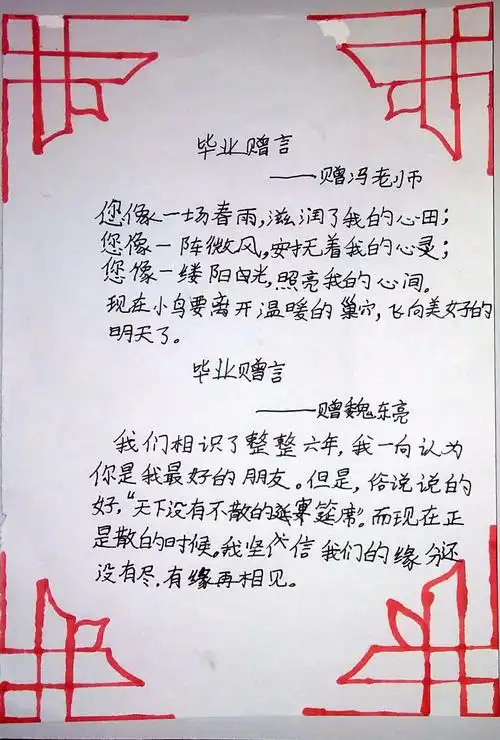 毕业赠言
——赠冯老师
您像一场春雨,滋润了我的心田;
您像一阵微风,安抚着我的心灵;
您像一缕阳光,照亮我的心间。
现在小鸟要离开温暖的巢穴,飞向美好的
明天了。
毕业赠言
——赠魏东亮
我们相识了整整六年,我一向认为
你是我最好的朋友。但是,俗说说的
好,“天下没有不散的筵席”。而现在正
是散的时候。我坚信我们的缘分还
没有尽,有缘再相见。